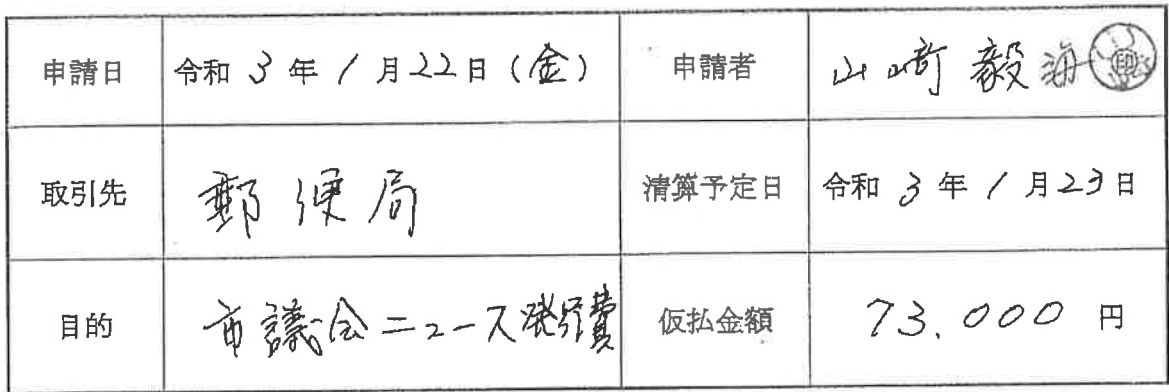 申請日 令和 3 年 1 月 22 日 (金) 申請者 山崎 毅海 印
取引先 郵便局 清算予定日 令和 3 年 1 月 23 日
目的 市議会ニュース発行費 仮払金額 73.000 円